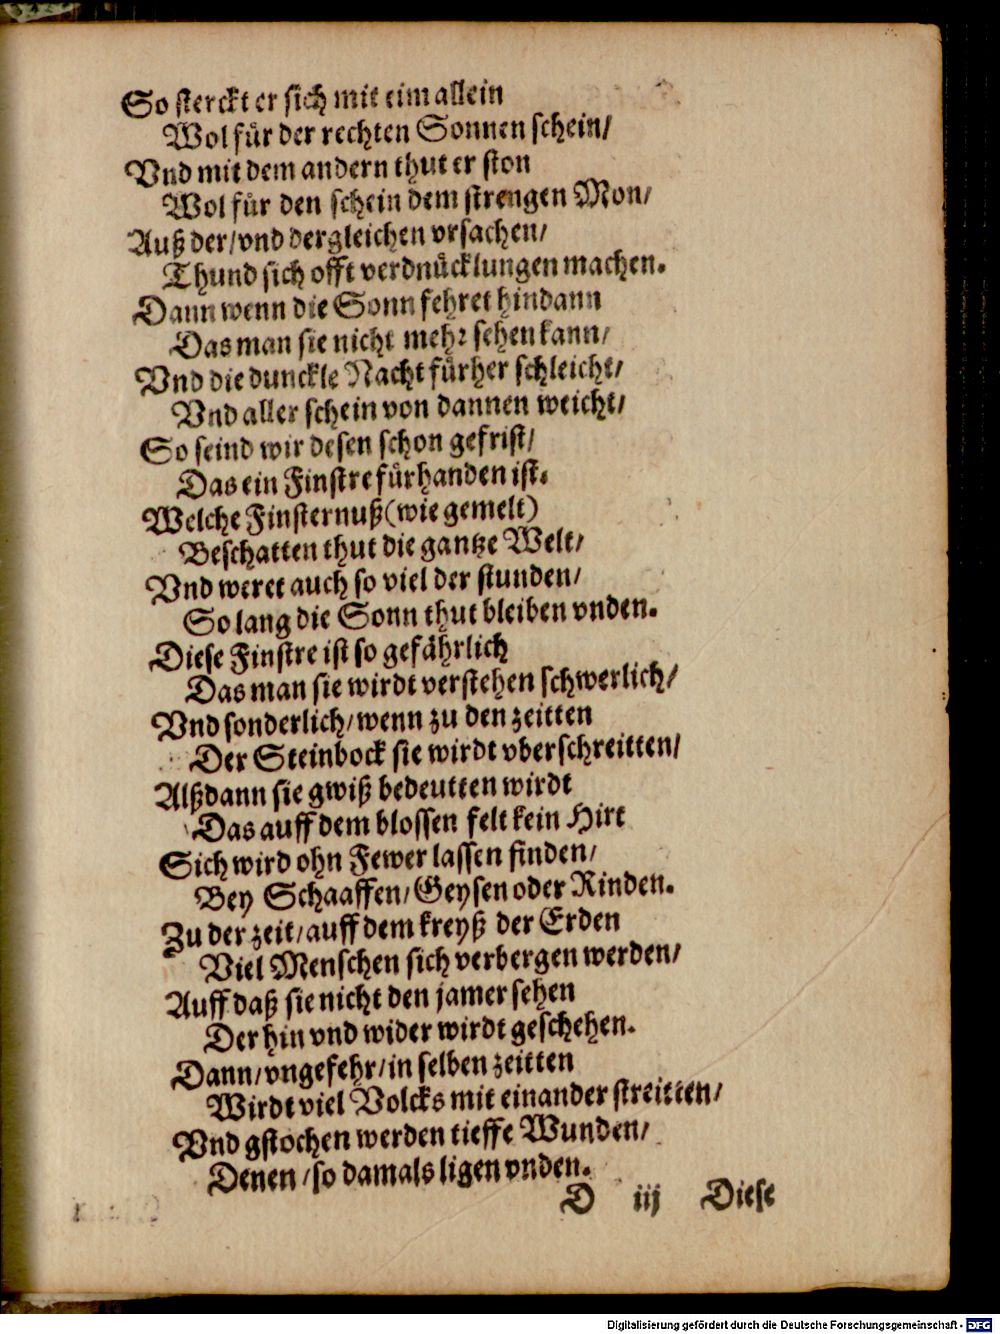 So sterckt er sich mit eim allein
Wol für der rechten Sonnen schein/
Vnd mit dem andern thut er ston
Wol für den schein dem strengen Mon/
Auß der/vnd dergleichen vrsachen/
Thund sich offt verdnücklungen machen.
Dann wenn die Sonn fehret hindann
Das man sie nicht mehr sehen kann/
Vnd die dunckle Nacht fürher schleicht/
Vnd aller schein von dannen weicht/
So seind wir desen schon gefrist/
Das ein Finstre fürhanden ist.
Welche Finsternuß (wie gemelt)
Beschatten thut die gantze Welt/
Vnd weret auch so viel der stunden/
So lang die Sonn thut bleiben vnden.
Diese Finstre ist so gefährlich
Das man sie wirdt verstehen schwerlich/
Vnd sonderlich/wenn zu den zeitten
Der Steinbock sie wirdt vberschreitten/
Alßdann sie gwiß bedeutten wirdt
Das auff dem blossen felt kein Hirt
Sich wird ohn Fewer lassen finden/
Bey Schaaffen/Geysen oder Rinden.
Zu der zeit/auff dem kreyß der Erden
Viel Menschen sich verbergen werden/
Auff daß sie nicht den jamer sehen
Der hin vnd wider wirdt geschehen.
Dann/vngefehr/in selben zeitten
Wirdt viel Volcks mit einander streitten/
Vnd gstochen werden tieffe Wunden/
Denen/so damals ligen vnden.
D iij Diese
Digitalisierung gefördert durch die Deutsche Forschungsgemeinschaft - DFG